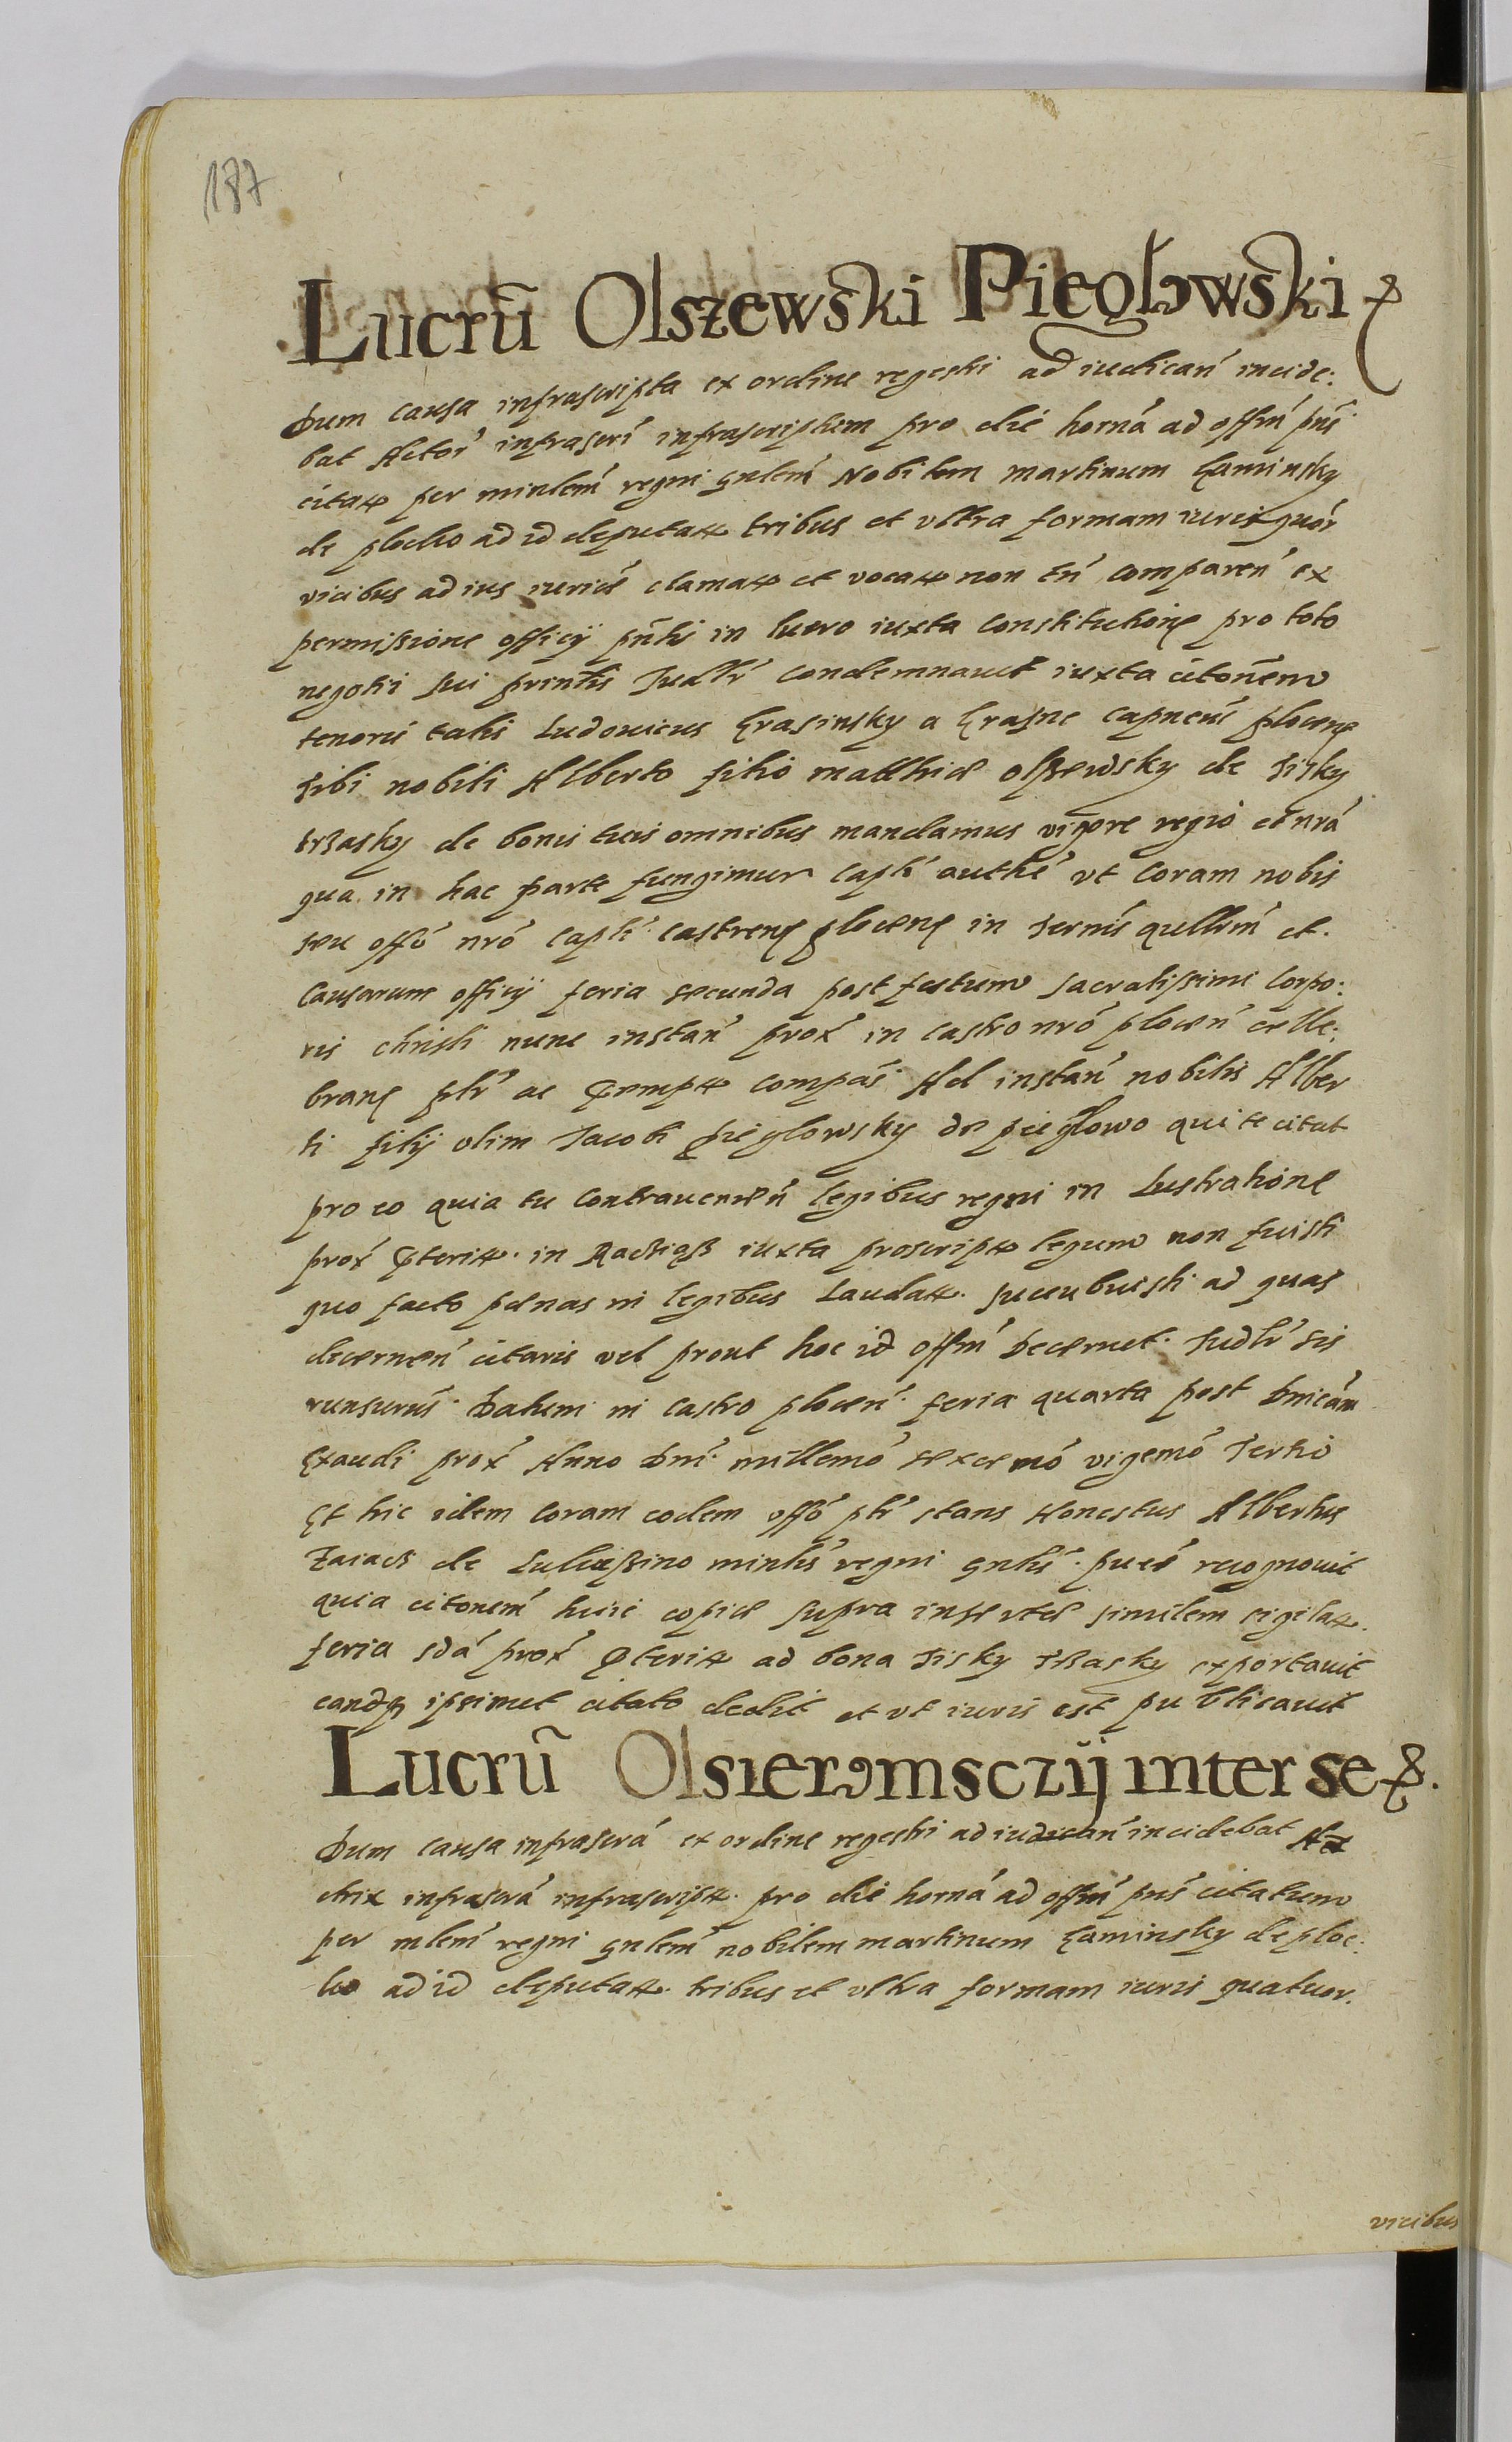 187
Lucrũ Olszewski Pieglowski
Dum causa infrascripta ex ordine regestri ad iudicań incide:
bat Actor infrascr infrascriptum pro die horná ad offm pńs
citat per minlem regni gnlem Nobilem Martinum Kaminsky
de plocko ad id deputat tribus et vltra formam iuris quór
vicibus ad ius iurid clamat et vocat non tń comparen ex
permissione officij pńtis in lucro iuxta Constitutione pro toto
negotii sui printis Judłr condemnauit iuxta citonem
tenoris talis Ludouicus Krasinsky a Krasne capneus plocens
Tibi nobili Alberto filio Matthiæ olszewsky de Sisky
de bonis tuis omnibus mandamus vigore regio et nrá
qua in hac parte fungimur Capli authe vt coram nobis
seu offo nro capli castrens plocens in termis qullrm et
causarum officij feria secunda post festum sacratissimi Corpo:
ris christi nunc instan prox in castro nró plocen celle:
brans pltr ac compás Ad instan nobilis Alber
ti filij olim Jacobi pieglowsky de pieglowo qui te citat
pro eo quia tu contraueniēn legibus regni in Lustratione
prox pterit in Raciąsz iuxta proscript legum non fuisti
quo facto pænas in legibus Laudat succubuisti ad quas
decernen citaris vel prout hoc id offm decernet Judłr sis
runsurus Datum in castro plocen feria quarta post Dnicam
Exaudi prox Anno Dni millemo sexcemo vigemo Tertio
Et hic idem coram eodem offo pltr stans Honestus Albertus
Zaiacz de minlis regni gnlis pues recognouit
quia citonem huic copiæ supra insertæ similem sigilat
feria sdá prox pterit ad bona Sisky exportauit
eandq ipsimet citato dedit et vt iuris est publicauit
Lucrũ Olsieromsczij inter se
Dum causa infrascrá ex ordine regestri ad iudicań incidebat Ac
trix infrascrá infrascript pro die horná ad offm pńs citatum
per mlem regni gnlem nobilem martinum Kaminsky de ploc:
ko ad id deputat tribus et vltra formam iuris quatuor
vicibus